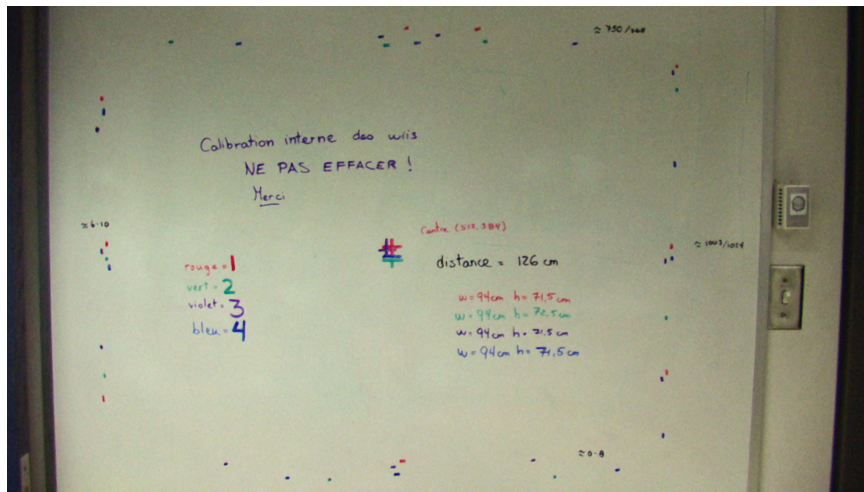 ≈ 750/768
Calibration interne des wiis
NE PAS EFFACER !
Merci
≈ 6-10
Centre (512, 384)
≈ 1003/1024
distance = 126 cm
rouge = 1
vert = 2
violet = 3
bleu = 4
w = 94cm h = 71,5 cm
w = 94cm h = 72,5 cm
w = 94 cm h = 71,5 cm
w = 94 cm h = 71,5 cm
≈ 0-8